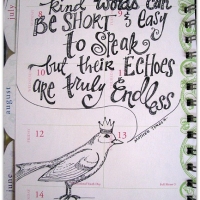 kind words can
BE SHORT & easy
to SPEAK
but their ECHOES
ARE truly Endless
MOTHER TERESA
july
august
june
12
13
14